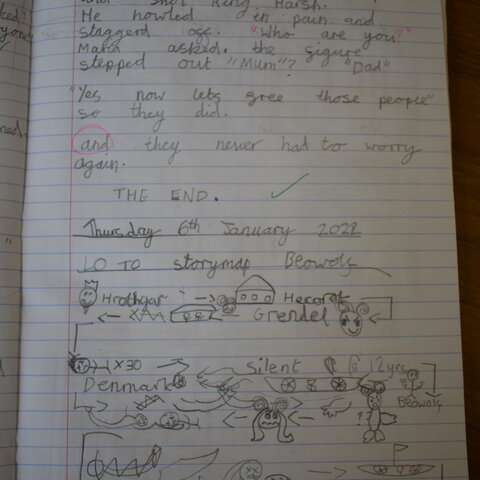 and shot King Harsh.
He howled in pain and
staggerd off. "Who are you?"
Maria asked. the figure
stepped out "Mum"? "Dad"
"Yes now lets gree those people"
so they did.
and they never had to worry
again.
THE END.
Thursday 6th January 2022
LO TO storymap Beowolf
Hrothgar Heorot
Grendel
x30 Silent 12yrs
Denmark Beowolf
?